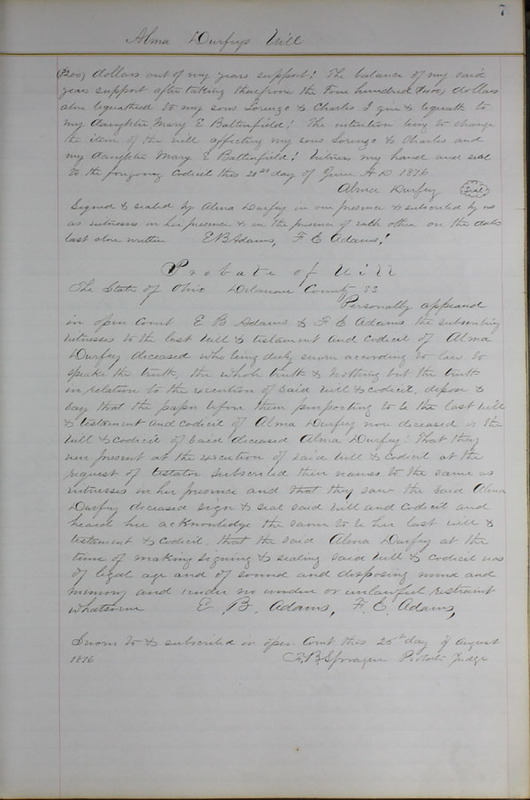 7
Alma Durfeys Will
(200) dollars out of my years support! The balance of my said
years support after taking therefrom the two hundred (200) dollars
above bequeathed to my sons Lorenzo & Charles I give & bequeath to
my daughter Mary E Battenfield! The intention being to change
the item of the will affecting my sons Lorenzo & Charles and
my daughter Mary E Battenfield! Witness my hand and seal
to the foregoing Codicil this 20th day of June A D 1876
Alma Durfey (Seal)
Signed & sealed by Alma Durfey in our presence & subscribed by us
as witnesses in her presence & in the presence of each other on the date
last above written E B Adams, F E Adams!
Probate of Will
The State of Ohio Delaware County SS
Personally appeared
in open Court E B Adams & F E Adams the subscribing
witnesses to the last Will & testament and Codicil of Alma
Durfey deceased who being duly sworn according to law to
speak the truth, the whole truth & nothing but the truth
in relation to the execution of said will & codicil, depose &
say that the paper before them purporting to be the last Will
& testament and codicil of Alma Durfey now deceased is the
Will & Codicil of said deceased Alma Durfey! That they
were present at the execution of said Will & Codicil at the
request of testator subscribed their names to the same as
witnesses in her presence and that they saw the said Alma
Durfey deceased sign & seal said Will and Codicil and
heard her acknowledge the same to be her last will &
testament & Codicil, that the said Alma Durfey at the
time of making signing & sealing said Will & codicil was
of legal age and of sound and disposing mind and
memory and under no undue or unlawful restraint
whatsoever E. B. Adams, F. E. Adams,
Sworn to & subscribed in open Court this 25th day of August
1876 F. B. Sprague Probate Judge